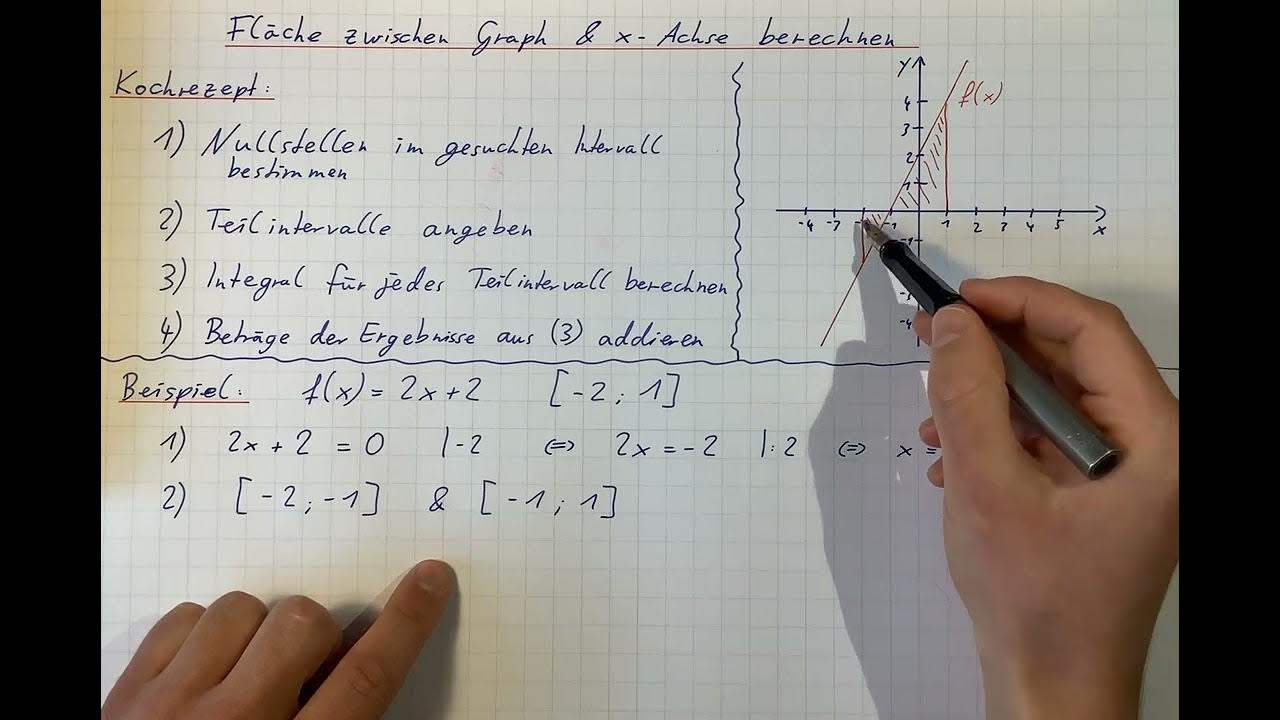 Fläche zwischen Graph & x-Achse berechnen
Kochrezept:
1) Nullstellen im gesuchten Intervall
bestimmen
2) Teilintervalle angeben
3) Integral für jedes Teilintervall berechnen
4) Beträge der Ergebnisse aus (3) addieren
y
4
3
2
1
f(x)
-4 -3 -1 1 2 3 4 5 x
-1
-4
Beispiel: f(x) = 2x+2 [-2; 1]
1) 2x + 2 = 0 |-2 <=> 2x = -2 |:2 <=> x =
2) [-2; -1] & [-1; 1]